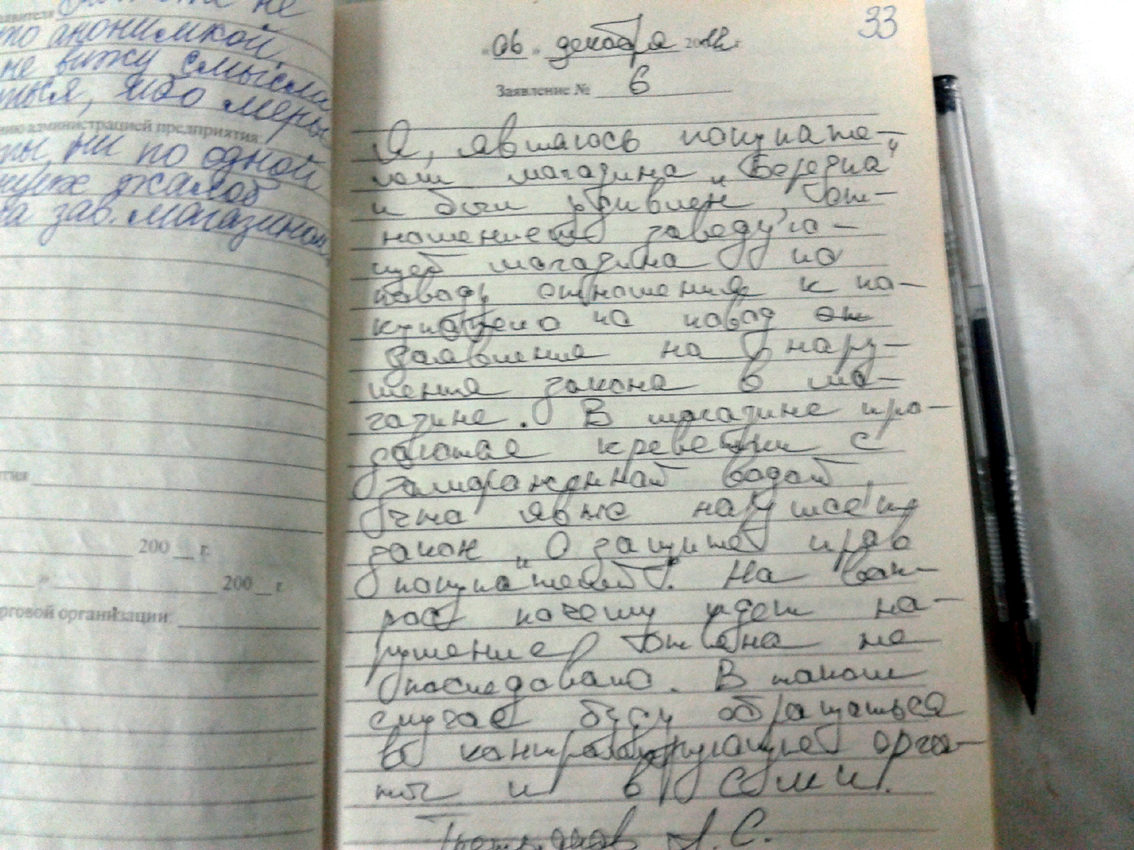 то анонимкой,
не вижу смысла
ибо меры
администрацией предприятия
ни по одной
жалоб
на зав. магазином
200 __ г.
200 __ г
торговой организации:
33
"06" декабря 2012 г.
Заявление № 6
Я, являюсь покупате-
лем магазина „Бередиа"
и был удивлен от-
ношением заведую-
щей магазина по
поводу отношения к по-
на повод
заявления на нару-
шения закона в ма-
газине. В магазине про-
креветки с
замороженной водой,
что явно
закон „О защите прав
покупателей". На воп-
рос почему идет на-
рушение ответа не
последовало. В таком
случае буду обращаться
в контролирующие орга-
ны и в СМИ.
А.С.